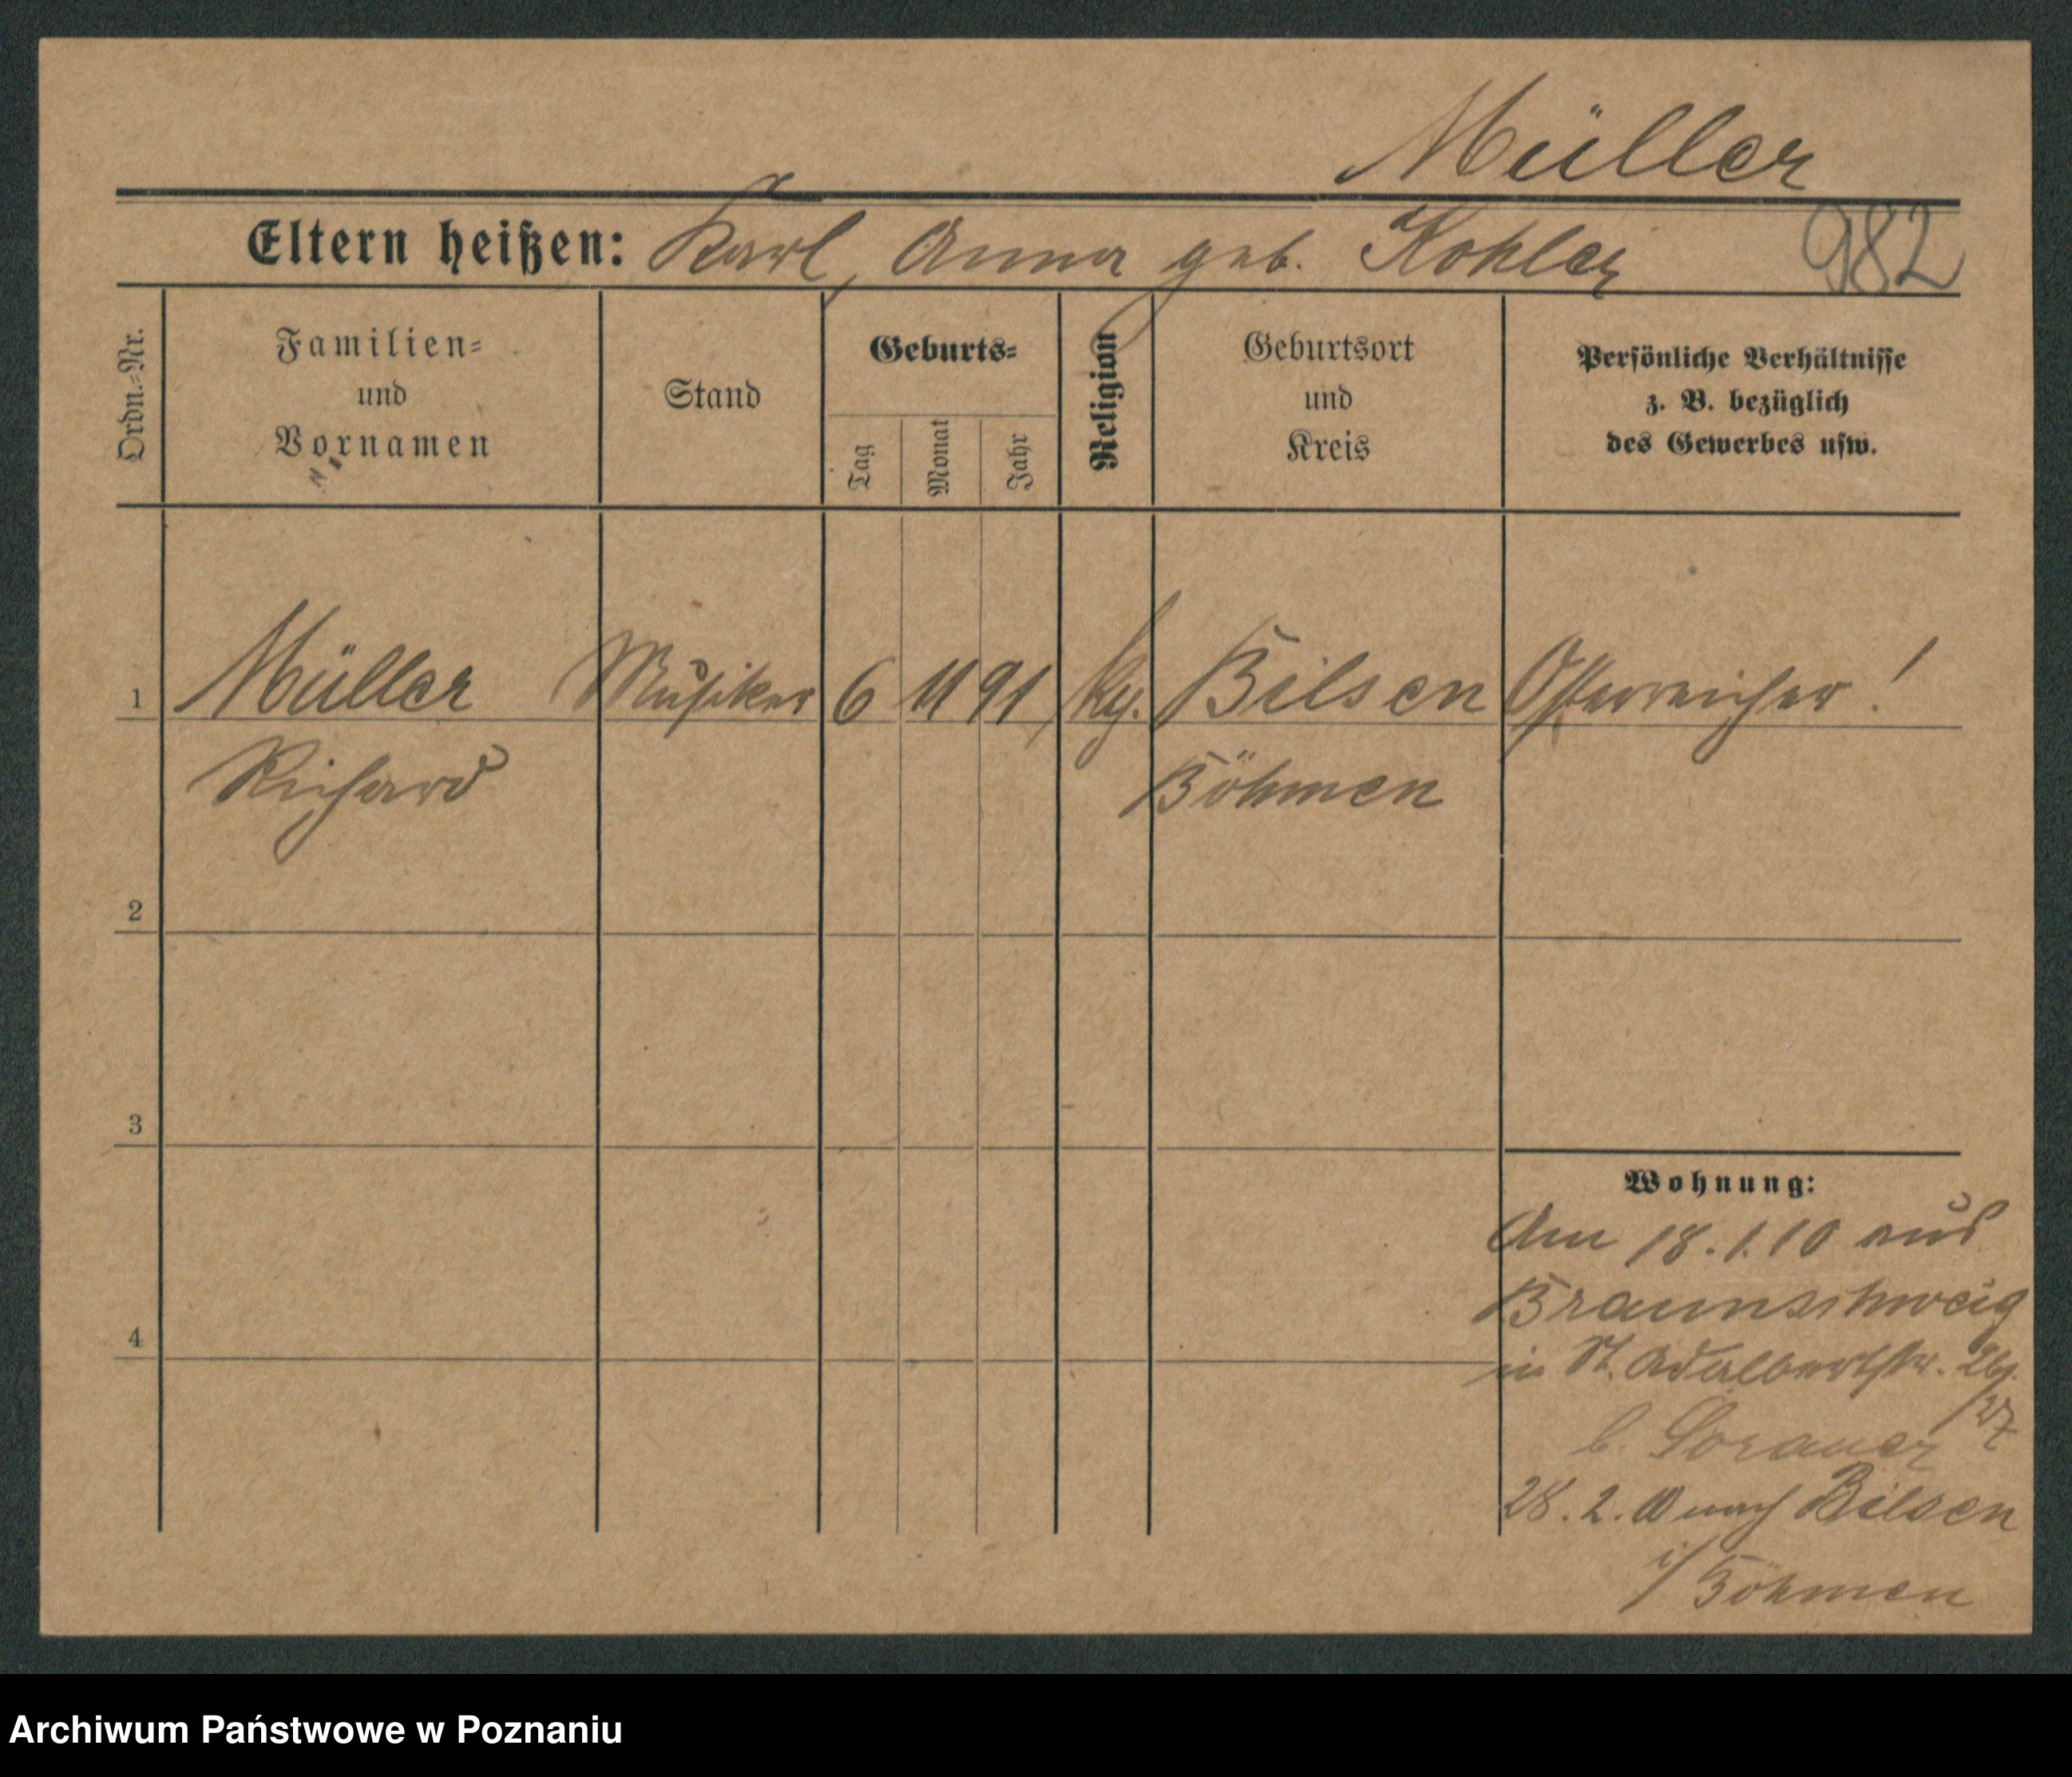 Müller
Eltern heißen: Karl, Anna geb. Kohler 982
Ordn.=Nr.
Familien=
und
Vornamen
Stand
Geburts=
Tag
Monat
Jahr
Religion
Geburtsort
und
Kreis
Persönliche Verhältnisse
z. B. bezüglich
des Gewerbes usw.
1 Müller Musiker 6 11 91 Bilsen Österreicher!
Richard Böhmen
2
3
4
Wohnung:
Am 18.1.10 aus
Braunschweig
in St. Adalbertstr. 26/
27
b. Sorauer
28.2.10 nach Bilsen
i/Böhmen
Archiwum Państwowe w Poznaniu